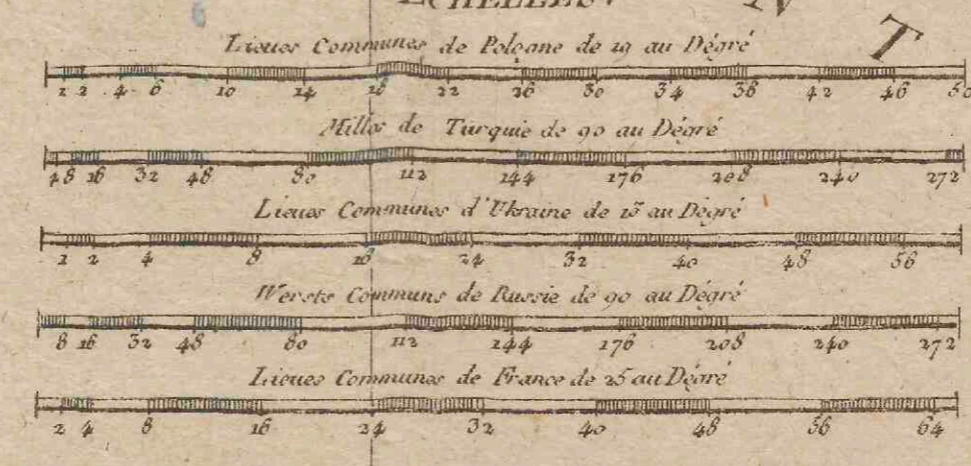 ECHELLES.
N
T
Lieues Communes de Pologne de 19 au Dégré
1 2 4 6 10 14 18 22 26 30 34 38 42 46 50
Milles de Turquie de 90 au Dégré
4 8 16 32 48 80 112 144 176 208 240 272
Lieues Communes d'Ukraine de 15 au Dégré
1 2 4 8 16 24 32 40 48 56
Wersts Communs de Russie de 90 au Dégré
8 16 32 48 80 112 144 176 208 240 272
Lieues Communes de France de 25 au Dégré
2 4 8 16 24 32 40 48 56 64